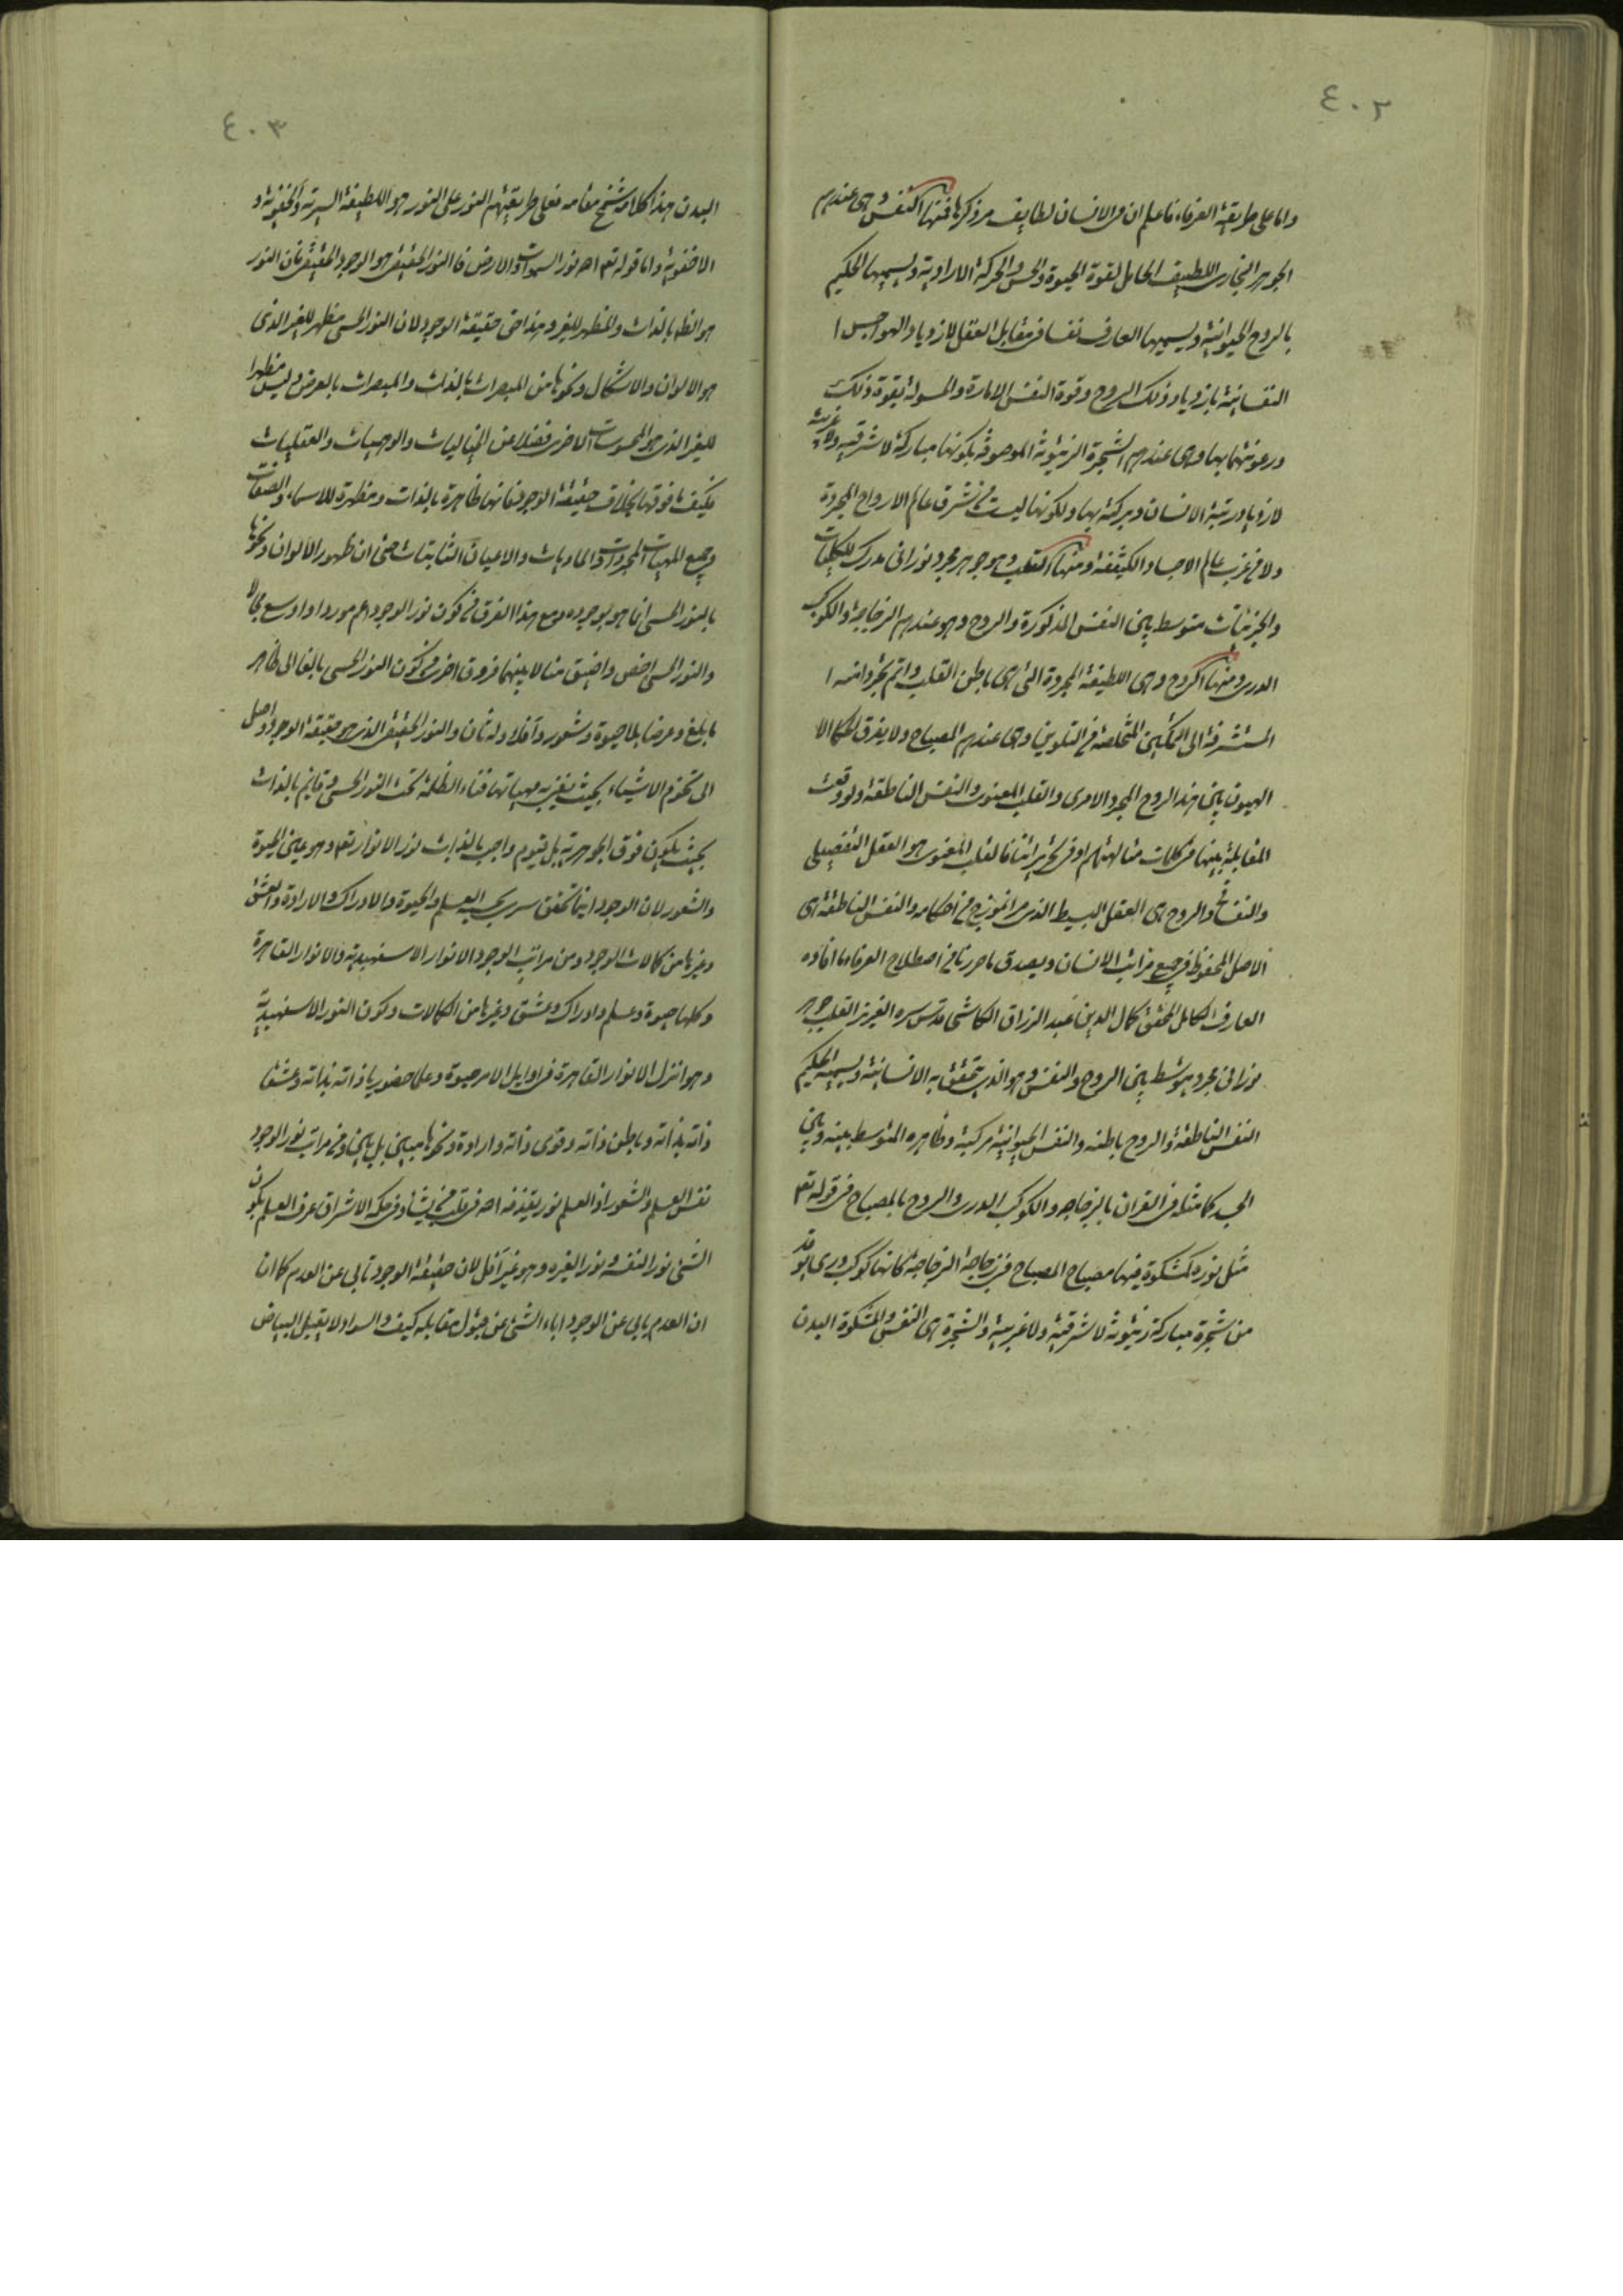 ٤٠٢
واما على طريقة العرفاء فاعلم ان فى الانسان لطايف مر ذكرها فمنها النفس وهى عندهم
الجوهر البخارى اللطيف الحامل لقوة الحيوة والحس والحركة الارادية ويسميها الحكيم
بالروح الحيوانية ويسميها العارف نفسا فى مقابل العقل لازدياد الهواجس ا
النفسانية بازدياد ذلك الروح وقوة النفس الامارة والمسولة بقوة ذلك
ورعونتهما بها وهى عندهم الشجرة الزيتونة الموصوفة بكونها مباركة لا شرقية ولا غربية
لازدياد رتبة الانسان وبركته بها ولكونها ليست فى شرق عالم الارواح المجردة
ولا فى غرب عالم الاجساد الكثيفة ومنها القلب وهو جوهر مجرد نورانى مدرك للكليات
والجزئيات متوسط بين النفس المذكورة والروح وهو عندهم الزجاجة والكوكب
الدرى ومنها الروح وهى اللطيفة المجردة التى هى باطن القلب واتم تجردا منه ا
المستشرفة الى التمكين المتخلصة فى التلوين وهى عندهم المصباح ولا يفرق الحكماء الا
الهيون بين هذا الروح المجرد الامرى والقلب المعنوى والنفس الناطقة ولو وقعت
المقابلة بينها فى كلمات متالهتهم او فى تحريراتنا فالقلب المعنوى هو العقل التفصيلى
والنفسانى والروح هى العقل البسيط الذى مر انموذج فى احكامه والنفس الناطقة هى
الاصل المحفوظ فى جميع مراتب الانسان ويصدق ما حررنا فى اصطلاح العرفاء ما افاده
العارف الكامل المحقق كمال الدين عبد الرزاق الكاشى قدس سره العزيز القلب جوهر
نورانى مجرد يتوسط بين الروح والنفس وهو الذى يتحقق به الانسانية ويسميه الحكيم
النفس الناطقة والروح باطنه والنفس الحيوانية مركبة وظاهره المتوسط بينه وبين
الجسد كما مثله فى القران بالزجاجه والكوكب الدرى والروح بالمصباح فى قوله تع
مثل نوره كمشكوة فيها مصباح المصباح فى زجاجة الزجاجة كانها كوكب درى يوقد
من شجرة مباركة زيتونة لا شرقية ولا غربية والشجرة هى النفس والمشكوة البدن
٤٠٣
البدن هذا كلامه شمخ مقامه فعلى طريقتهم النور على النور هو اللطيفة السرية والخفوية و
الاخفوية واما قوله تع الله نور السموات والارض فالنور الحقيقى هو الوجود الحقيقى فان النور
هو الظاهر بالذات والمظهر للغير وهذا حق حقيقة الوجود لان النور الحسى مظهر للغير الذى
هو الالوان والاشكال ونحوها من المبصرات بالذات والمبصرات بالعرض وليس مظهرا
للغير الذى هو المحسوسات الاخرى فضلا عن الخياليات والوهميات والعقليات
فكيف ما فوقها بخلاف حقيقة الوجود فانها ظاهرة بالذات ومظهرة للاسماء والصفات
وجميع المهيات المجردات والماديات والاعيان الثابتات حتى ان ظهور الالوان ونحوها
بالنور الحسى انما هو بوجوده ومع هذا الفرق فى كون نور الوجود اعم موردا واوسع مجالا
والنور الحسى اخص واضيق منالا بينهما فروق اخرى فى كون النور الحسى
وعرضا بلا حيوة وشعور وآفلا وله ثان والنور الحقيقى الذى هو حقيقة الوجود واصل
الى تخوم الاشياء بحيث يفنى مهياتها فناء الظلمة تحت النور الحسى وقايم بالذات
بحيث يكون فوق الجوهرية بل قيوم واجب بالذات نور الانوار تع وهو عين الحيوة
والشعور لان الوجود اينما تحقق سرى بحسبه العلم والحيوة والادراك والارادة والعشق
وغيرها من كمالات الوجود ومن مراتب الوجود الانوار الاسفهبدية والانوار القاهرة
وكلها حيوة وعلم وادراك وعشق وغيرها من الكمالات وكون النور الاسفهبدية
وهو انزل الانوار القاهرة فى اوايل الامر حيوة وعلما حضوريا ذاته بذاته وعشقا
ذاته بذاته وباطن ذاته وقوى ذاته وارادة ونحوها مبين بل بين وفى مراتب نور الوجود
نفس العلم والشعور اذ العلم نور يقذفه الله فى قلب من يشاء وفى حكمة الاشراق عرف العلم بكون
الشئ نورا لنفسه ونورا لغيره وهو غير آفل لان حقيقة الوجود تابى عن العدم كما ان
ان العدم يابى عن الوجود اباء الشئ عن قبول مقابله كيف والسواد لا يقبل البياض